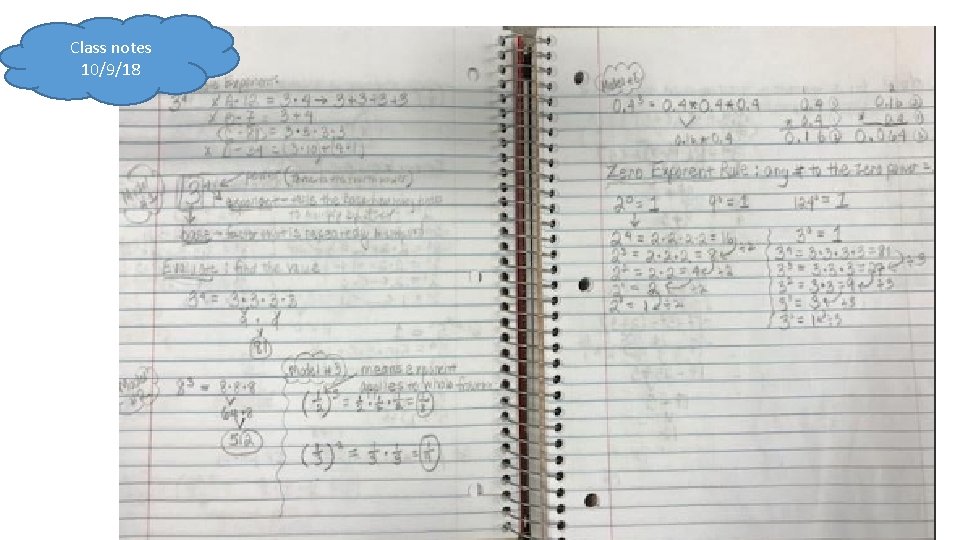 Class notes
10/9/18
Exponent:
3⁴ x A. 12 = 3·4 → 3+3+3+3
x B. 7 = 3+4
= 3·3·3·3
x
Model #1
3⁴ power
exponent - tells the base how many times
to multiply by itself
base - factor that is repeatedly multiplied
Evaluate: find the value
3⁴ = 3·3·3·3
9 · 9
81
Model #2
8³ = 8·8·8
64·8
512
Model #3 means exponent
applies to whole fraction
(1/2)³ = 1/2 · 1/2 · 1/2 =
(1/3)² = 1/3 · 1/3 =
Model #4
0.4³ = 0.4 x 0.4 x 0.4
0.16 x 0.4
0.4 ①
x 0.4 ①
0.16 ②
0.16 ②
x 0.4 ①
0.064 ③
Zero Exponent Rule: any # to the zero power =
2⁰ = 1 9⁰ = 1 124⁰ = 1
2⁴ = 2·2·2·2 = 16
2³ = 2·2·2 = 8 ÷2
2² = 2·2 = 4 ÷2
2¹ = 2 ÷2
2⁰ = 1 ÷2
3⁰ = 1
3⁴ = 3·3·3·3 = 81
3³ = 3·3·3 = 27 ÷3
3² = 3·3 = 9 ÷3
3¹ = 3 ÷3
3⁰ = 1 ÷3